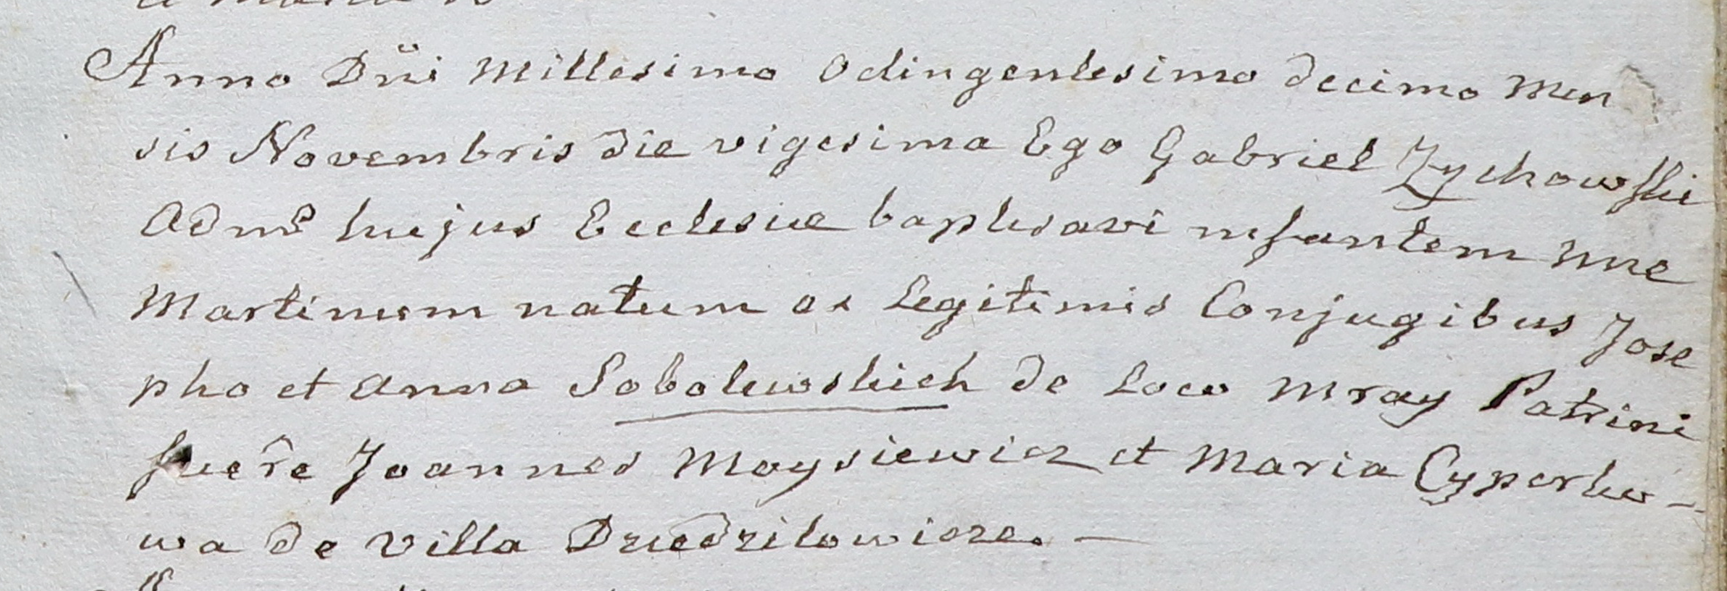 Anno Dni Millesimo Odingentesimo decimo Men
sis Novembris die vigesima Ego Gabriel Zychowski
Adms hujus Ecclesiae baptisavi infantem nne
Martinum natum ex Legitimis Conjugibus Jose
pho et Anna Sobolewskich de Loco Mray Patrini
fuere Joannes Moysiewicz et Maria Cyperko-
wa de Villa Dziedzilowicze. —